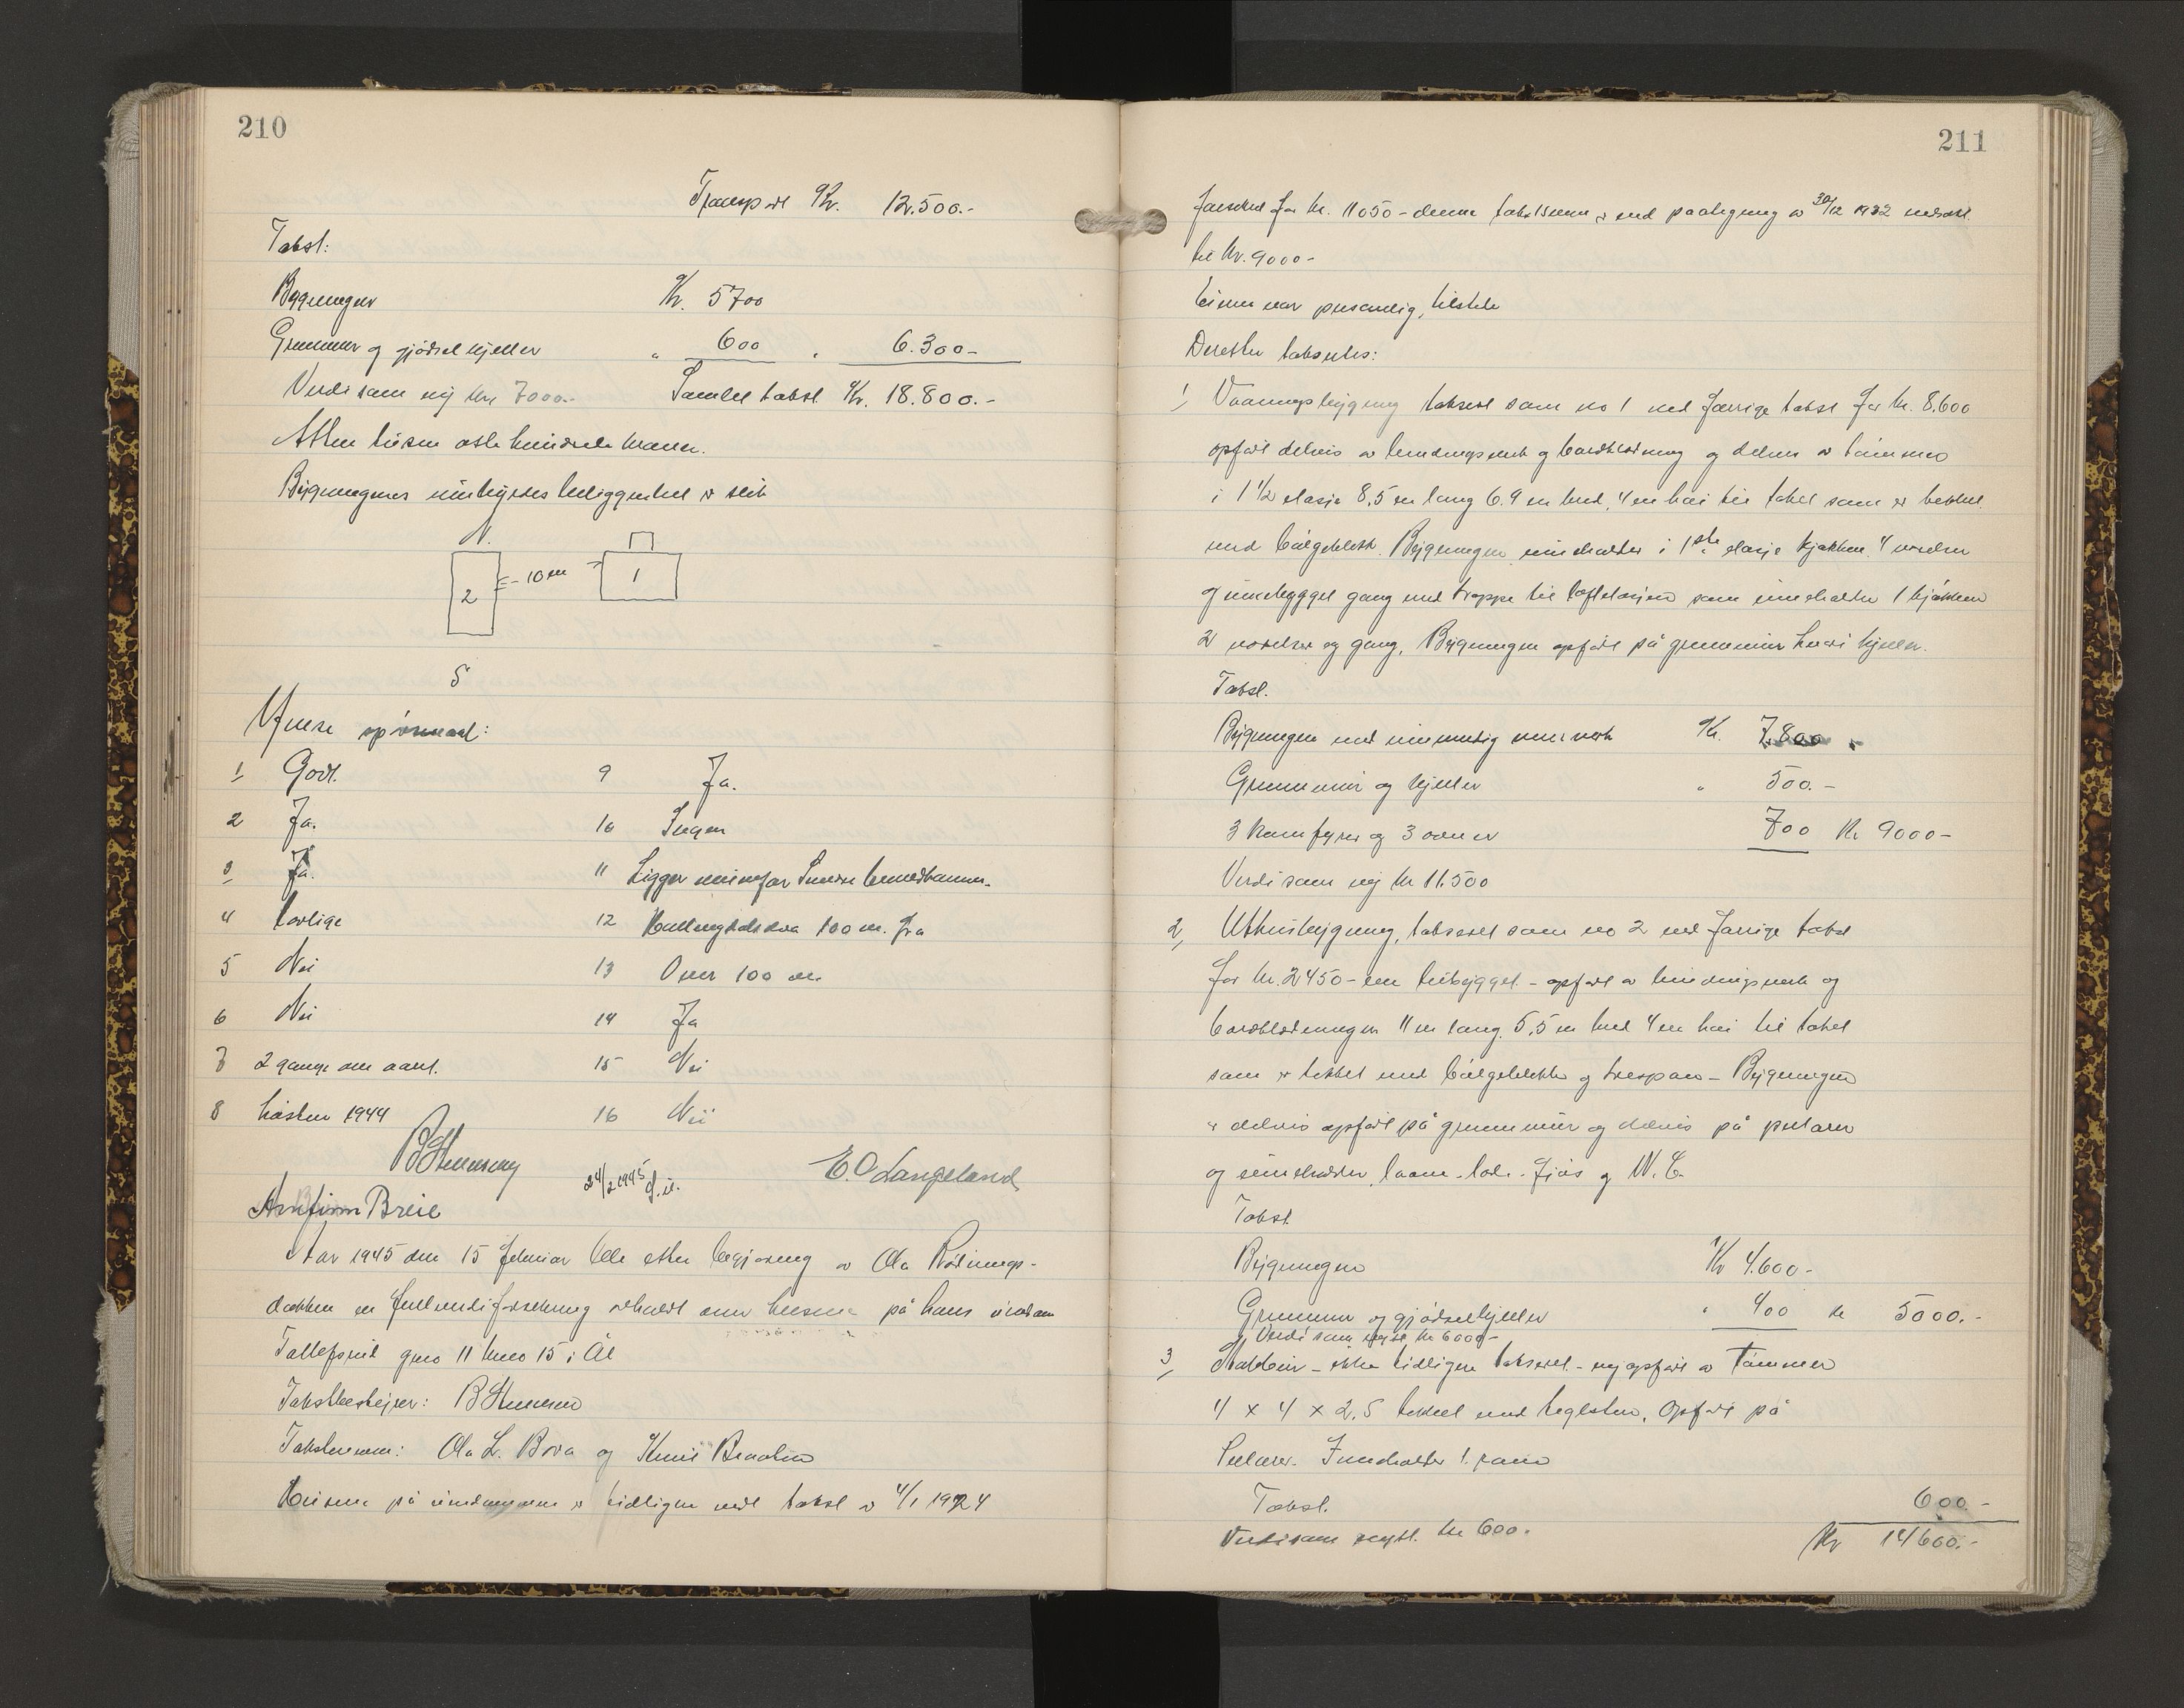 210
Transport Kr. 12.500.-
Takst:
Bygningen Kr. 5700
Grunmur og gjødselkjeller " 600 " 6.300-
Verdi som ny kr. 7000.- Samlet takst Kr. 18.800.-
Atten tusen otte hundrede kroner.
Bygningenes innbyrdes beliggenhet er slik
N.
2 =- 10 m 1
S
Ymse spørsmaal:
1 Godt. 9 Ja.
2 Ja. 10 Ingen
3 Ja. 11 Ligger
4 Lovlige 12 Hallingdalselva 100 m. fra
5 Nei 13 Over 100 m.
6 Nei 14 Ja
7 2 gange om aaret. 15 Nei
8 høsten 1944 16 Nei
24/2 1945 E. O. Langeland
Arnfinn Breie
Aar 1945 den 15 februar ble etter begjæring av Ola Rødnings-
dokken en fullverdiforsikring avholdt over husene på hans eiendom
gno 11 bno 15 i Ål
Takstbestyrer: B
Takstmenn: Ola L. Bova og Knut
Husene på eiendommen er tidligere ved takst av 4/1 1924
211
for kr. 11050- denne takstsum er ved paategning av 30/12 1932 nedsat
til kr. 9000-
Eieren var personlig tilstede
Derefter takseres:
1 Vaaningsbygning taksert som no 1 ved forrige takst for kr. 8.600
opført delvis av bindingsverk og bordkledning og delvis av tømmer
i 1 1/2 etasje 8,5 m lang 6.9 m bred, 4 m høi til taket som er tekket
med bølgeblekk. Bygningen inneholder i 1ste etasje kjøkken 4 værelser
og innebygget gang med trappe til loftetasjen som inneholder 1 kjøkken
2 værelser og gang. Bygningen opført på grunnmur hvori kjeller.
Takst.
Bygningen med innvendig murverk Kr. 7.800 .
Grunnmur og kjeller " 500.-
3 komfyrer og 3 ovner 700 Kr 9000-
Verdi som ny kr 11.500
2 Uthusbygning, taksert som no 2 ved forrige takst
for kr. 2450- tilbygget - opført av bindingsverk og
bordkledningen 11 m lang. 5,5 m bred 4 m høi til taket
som er tekket med bølgeblekk og trespon - Bygningen
er delvis opført på grunnmur og delvis på pilarer
og inneholder, laave - lade - fjøs og W. C.
Takst
Bygningen Kr 4.600-
Grunmur og gjødselkjeller " 400 kr 5000.-
Verdi som nytt kr 6000-
3 Stabbur - ikke tidligere taksert - ny opført av Tømmer
4 x 4 x 2.5 tekket med teglsten. Opført på
Pilarer. Inneholder 1. rom
Takst. 600.-
Verdi som nytt. kr 600. Kr 14600.-